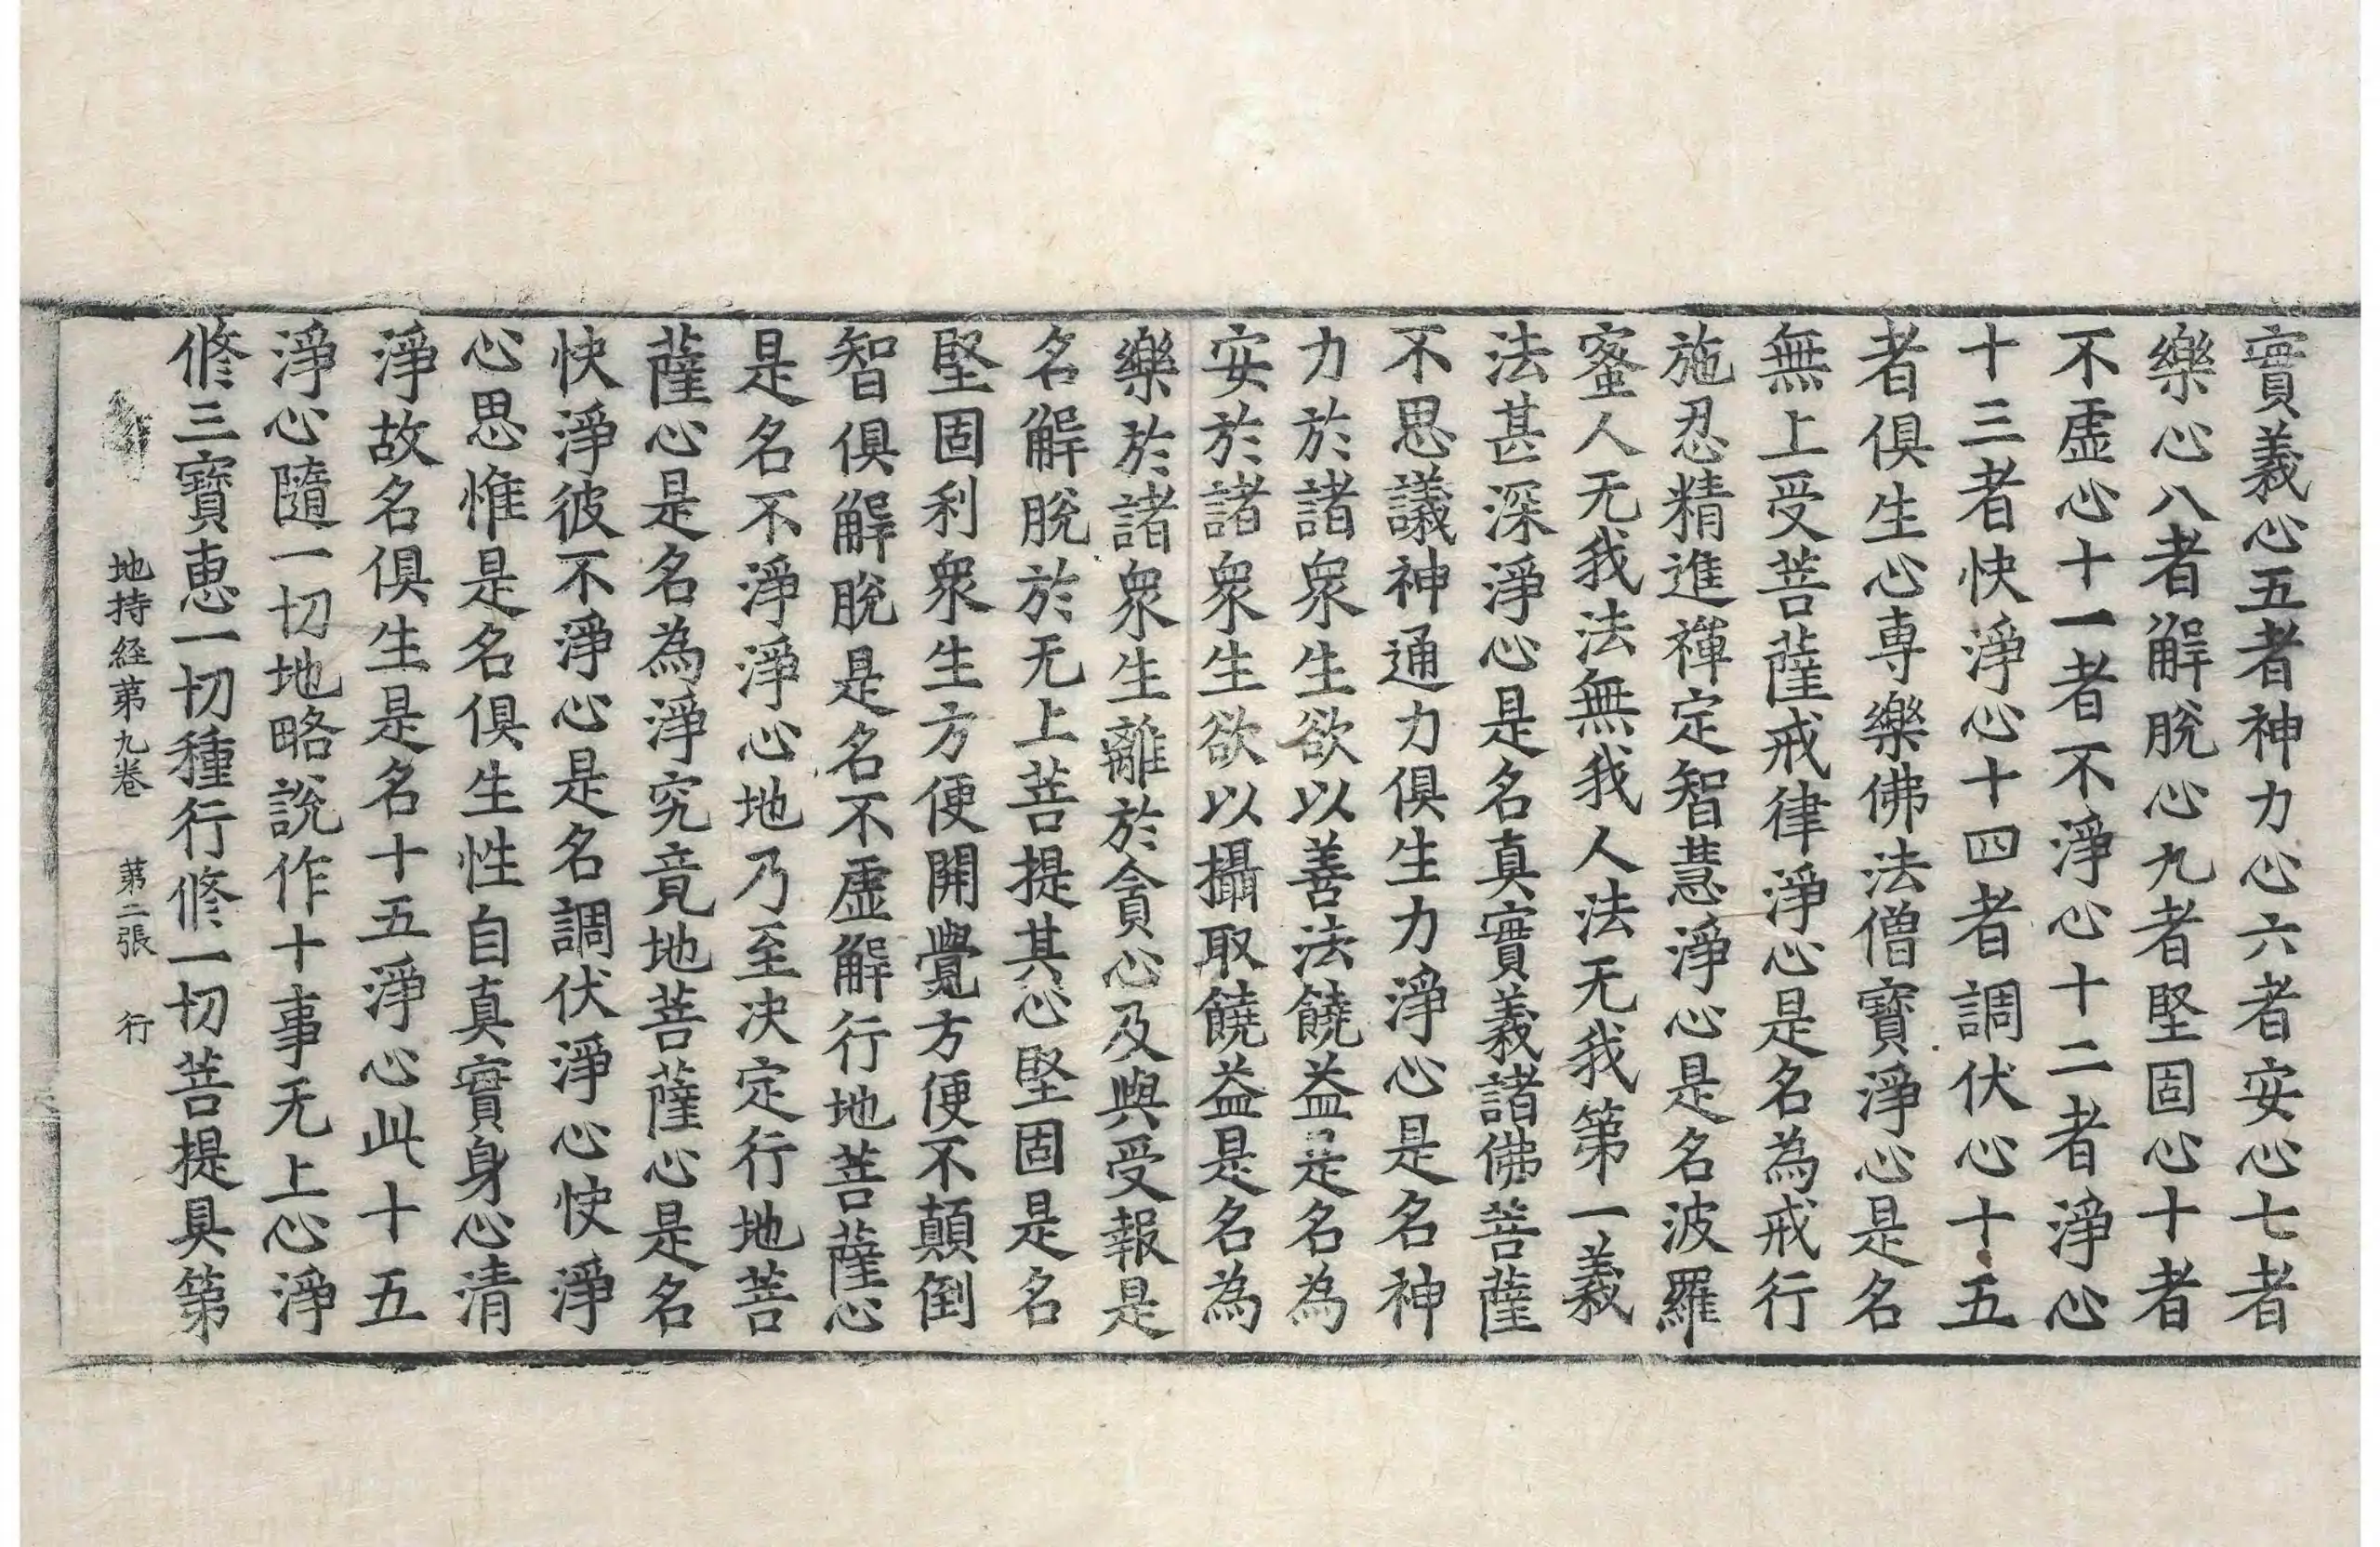 實義心五者神力心六者安心七者
樂心八者解脫心九者堅固心十者
不虛心十一者不淨心十二者淨心
十三者快淨心十四者調伏心十五
者俱生心專樂佛法僧寶淨心是名
無上受菩薩戒律淨心是名為戒行
施忍精進禪定智慧淨心是名波羅
蜜人无我法無我人法无我第一義
法甚深淨心是名真實義諸佛菩薩
不思議神通力俱生力淨心是名神
力於諸衆生欲以善法饒益是名為
安於諸衆生欲以攝取饒益是名為
樂於諸衆生離於貪心及與受報是
名解脫於无上菩提其心堅固是名
堅固利衆生方便開覺方便不顛倒
智俱解脫是名不虛解行地菩薩心
是名不淨淨心地乃至決定行地菩
薩心是名為淨究竟地菩薩心是名
快淨彼不淨心是名調伏淨心快淨
心思惟是名俱生性自真實身心清
淨故名俱生是名十五淨心此十五
淨心隨一切地略說作十事无上心淨
修三寶恵一切種行修一切菩提具第
地持経第九卷 第二張 行